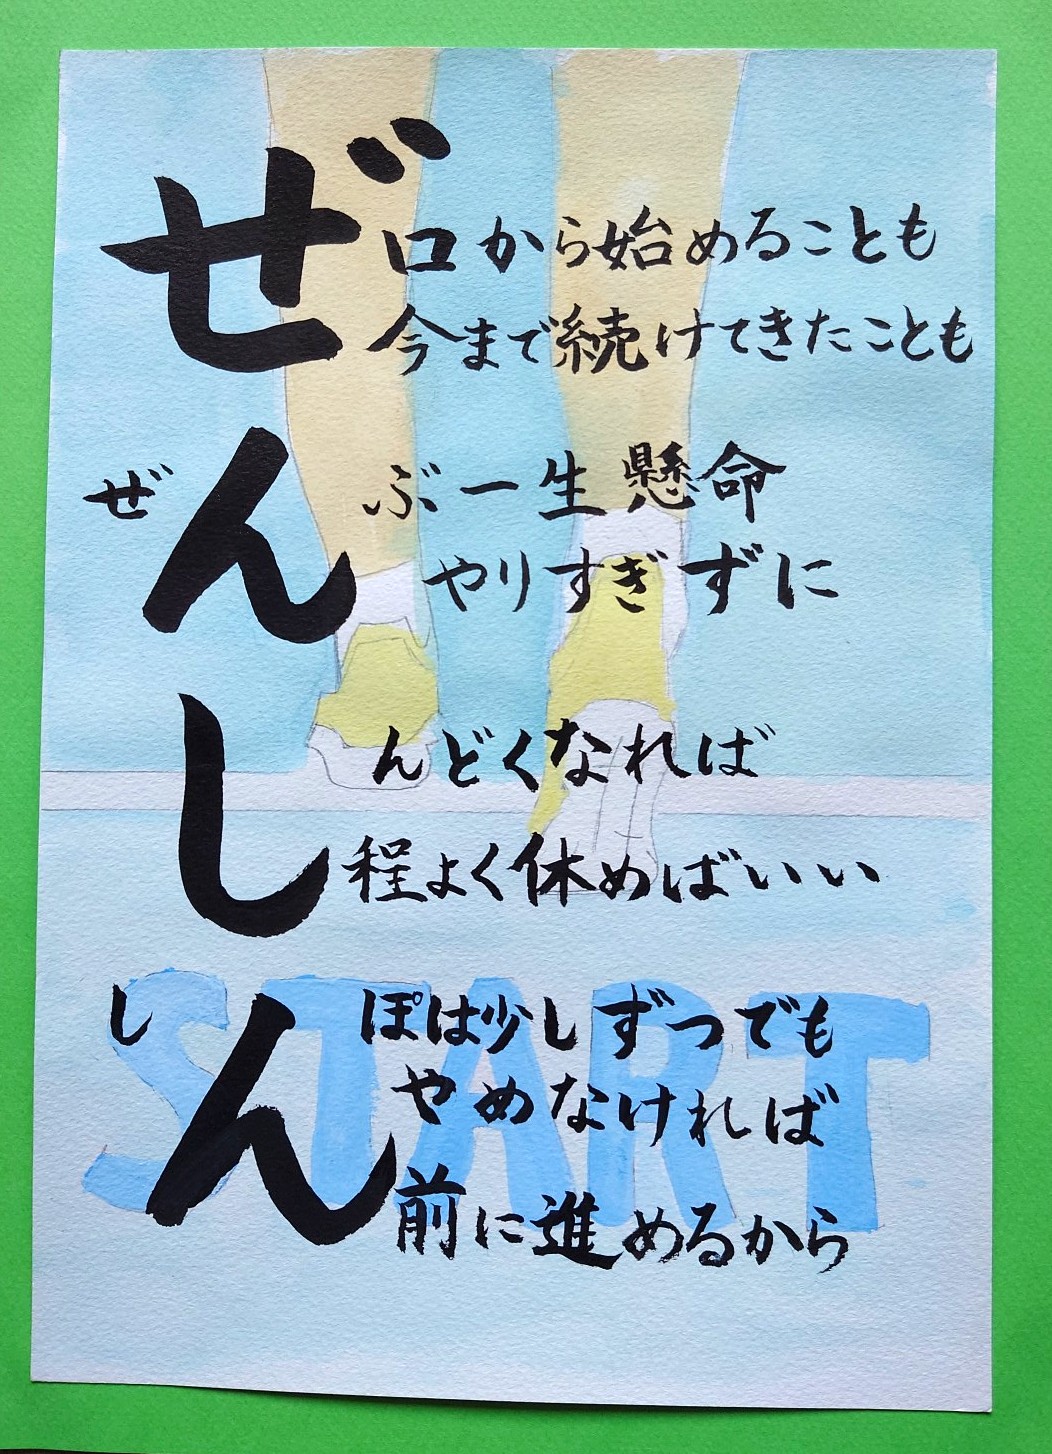 ぜロから始めることも
今まで続けてきたことも
ぜんぶ一生懸命
やりすぎずに
しんどくなれば
程よく休めばいい
しんぽは少しずつでも
やめなければ
前に進めるから
START